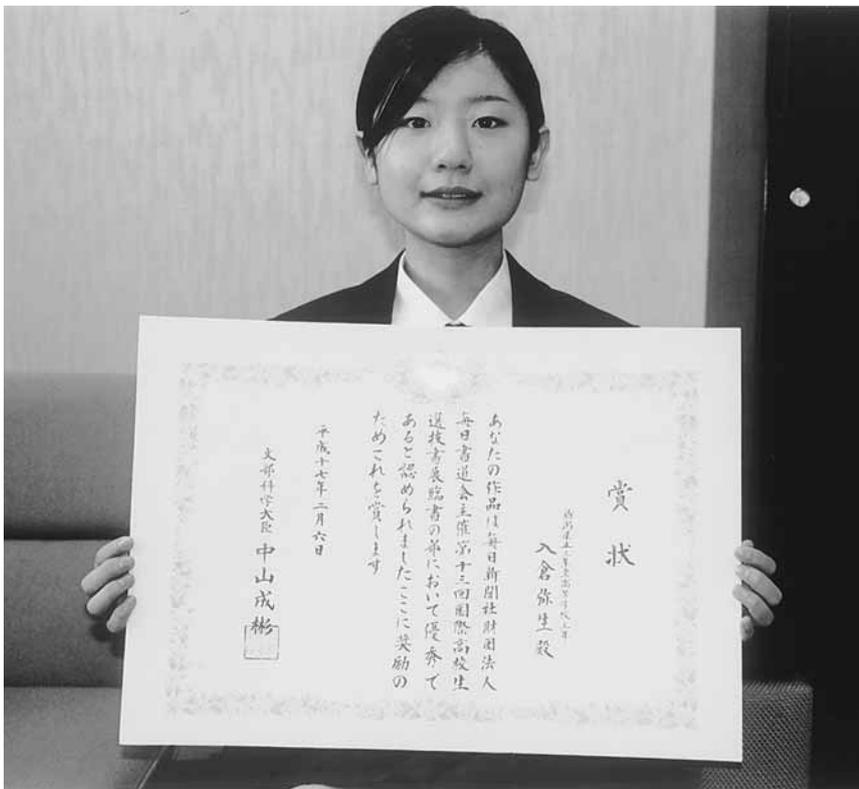 賞状
新潟県立三条東高等学校三年
入倉弥生殿
あなたの作品は毎日新聞社財団法人
毎日書道会主催第十三回国際高校生
選抜書展臨書の部において優秀で
あると認められましたここに奨励の
ためこれを賞します
平成十七年二月六日
文部科学大臣 中山成彬